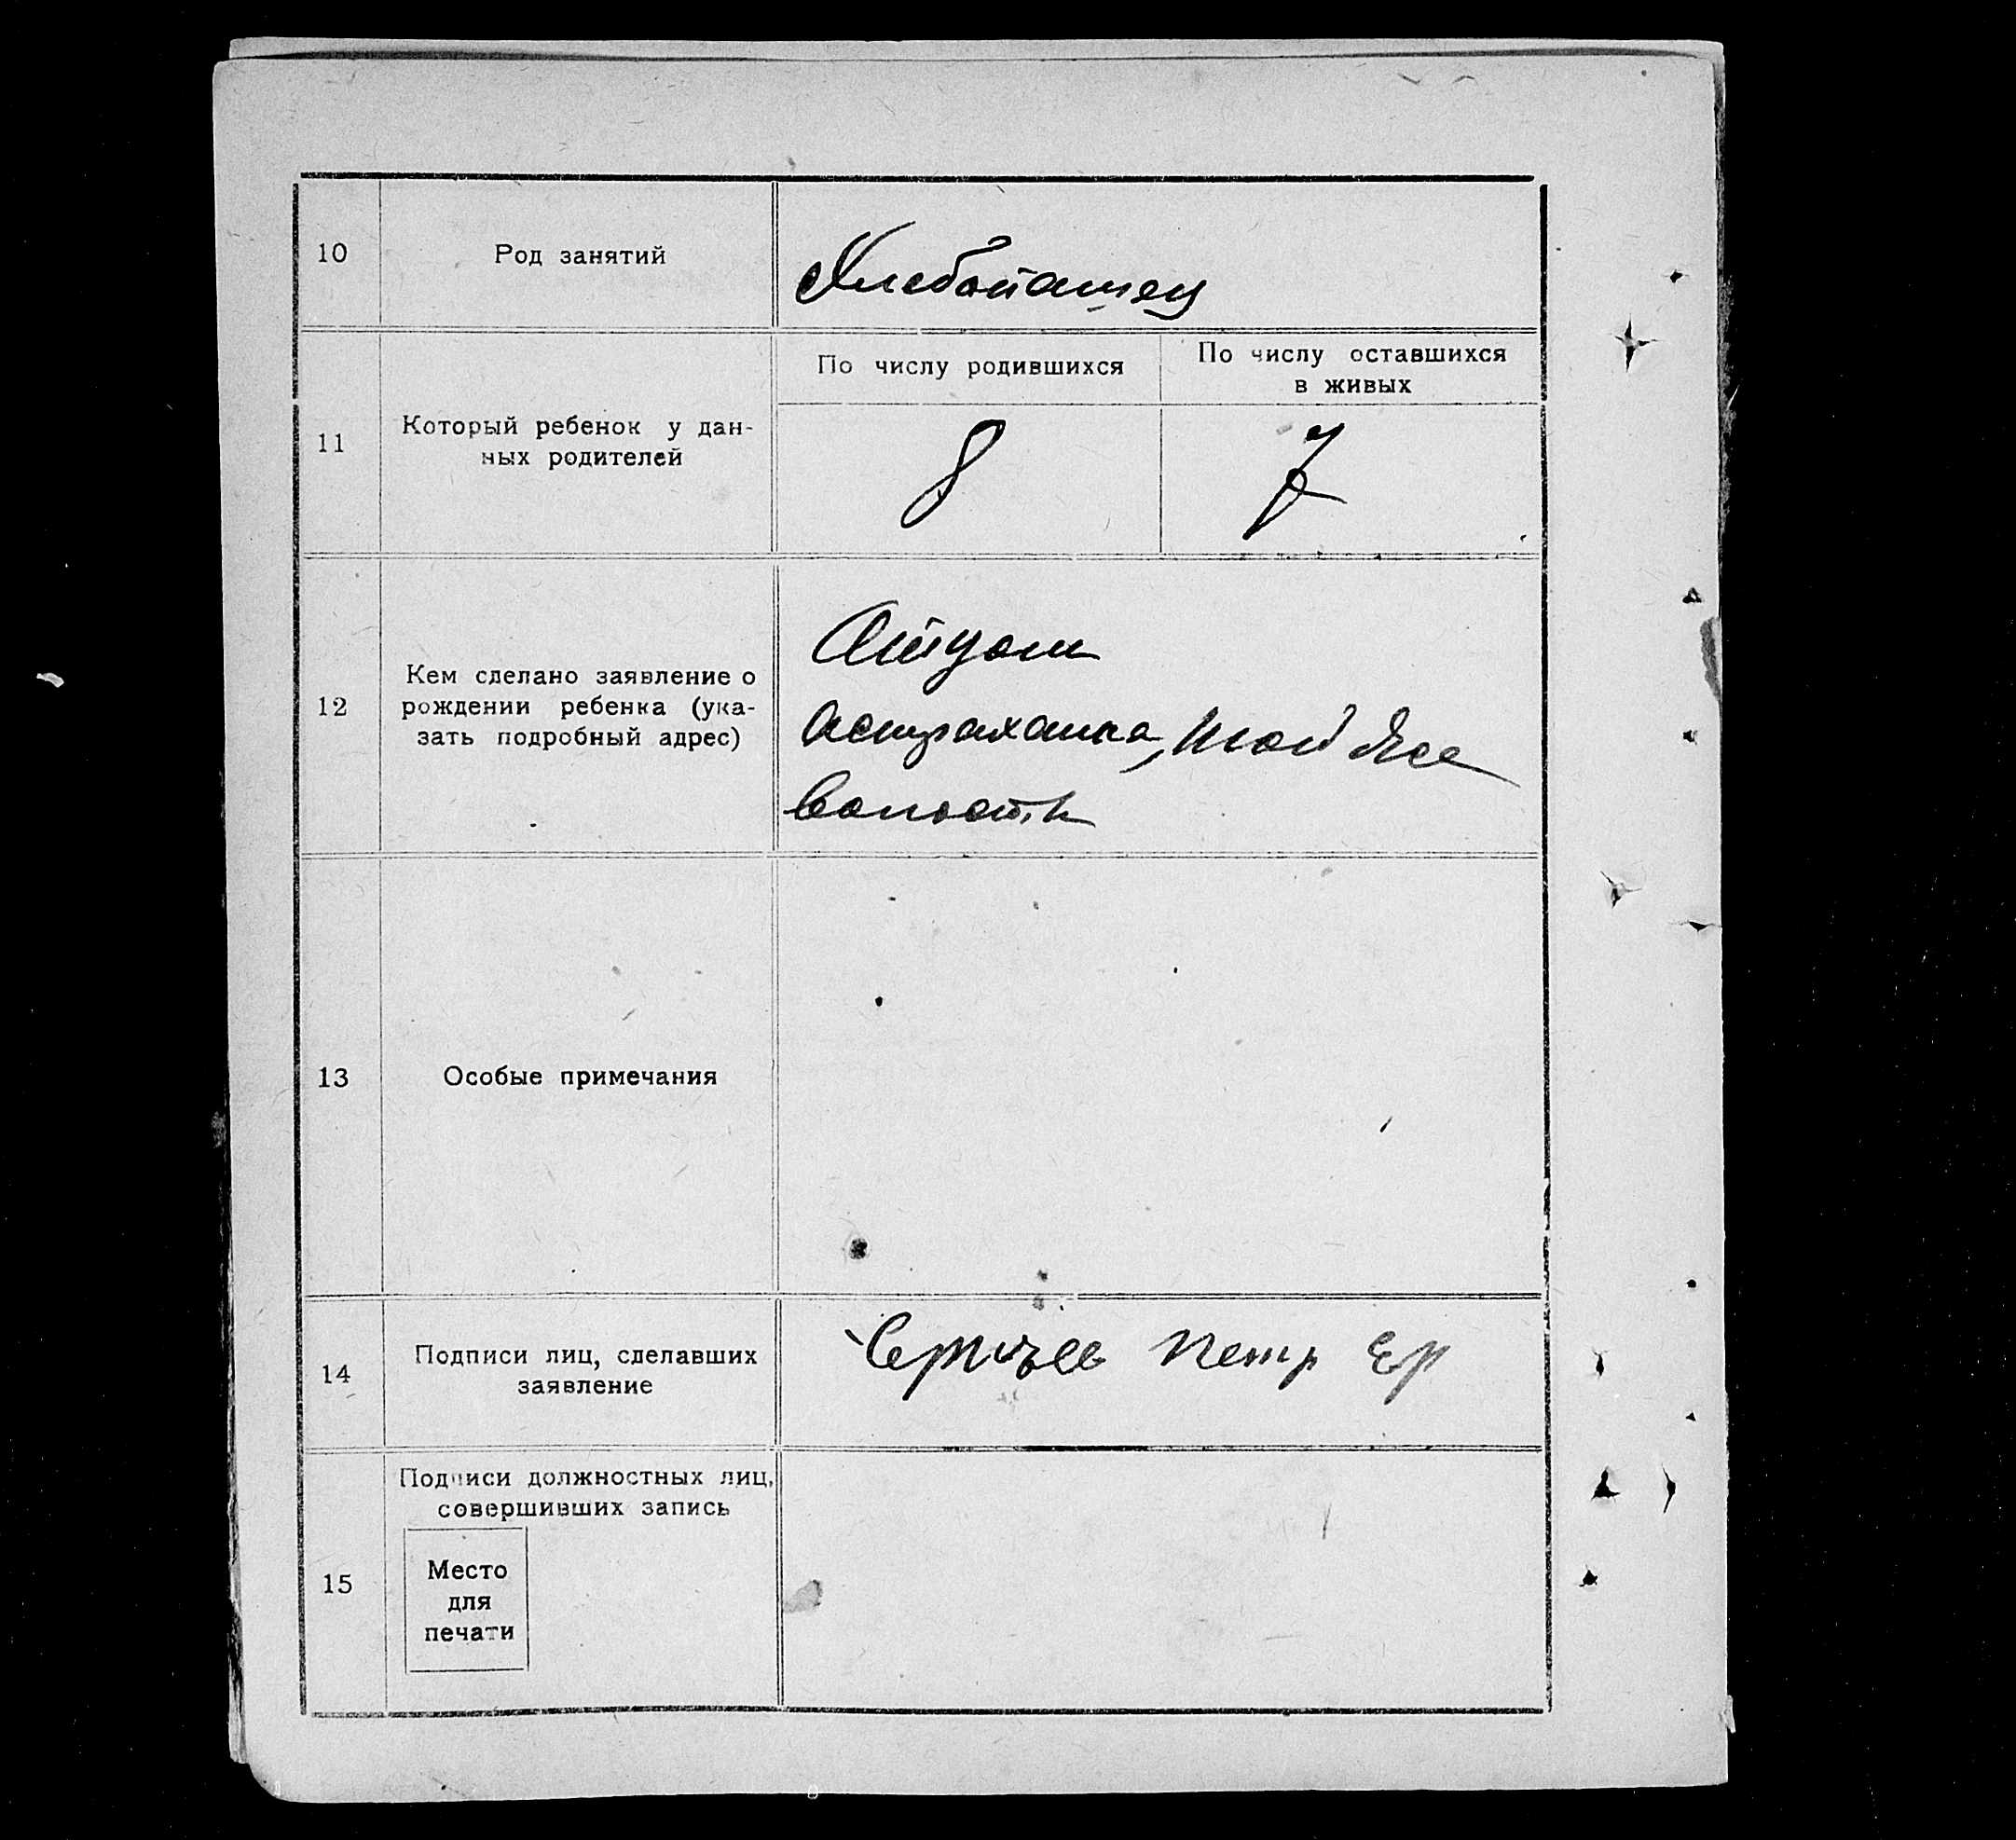 10
Род занятий
Хлебопашец
11
Который ребенок у дан-
ных родителей
По числу родившихся
По числу оставшихся
в живых
8
7
12
Кем сделано заявление о
рождении ребенка (ука-
зать подробный адрес)
Отцом
Астраханка, той же
волости
13
Особые примечания
14
Подписи лиц, сделавших
заявление
Петр Ер
15
Подписи должностных лиц,
совершивших запись
Место
для
печати